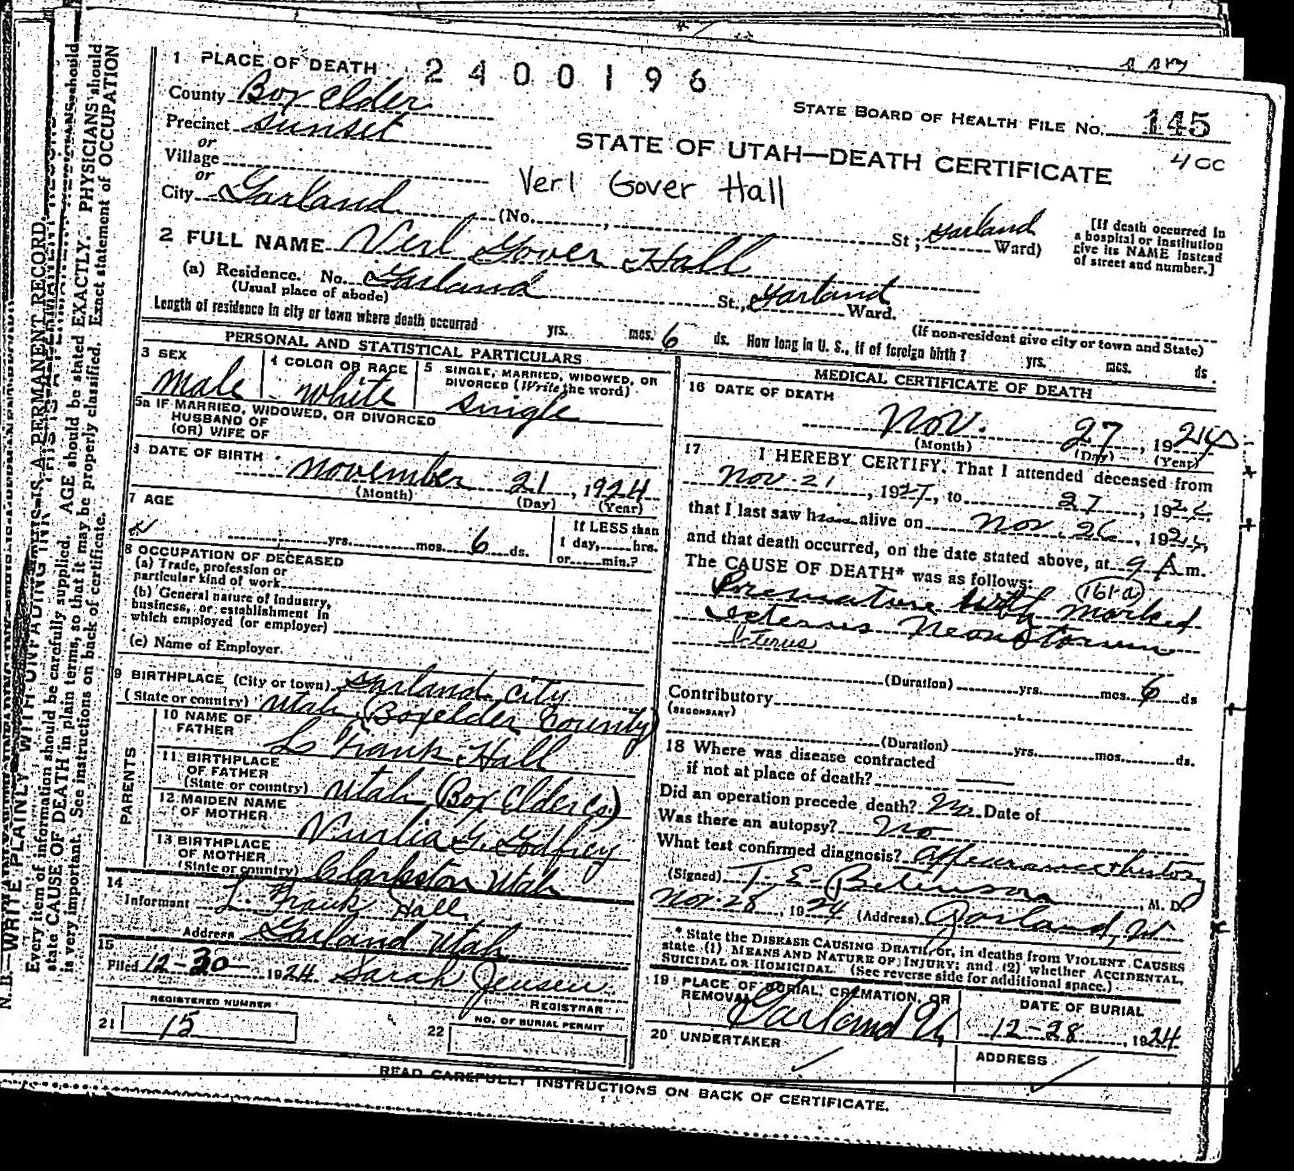 1 PLACE OF DEATH 2400196
County Box Elder
STATE BOARD OF HEALTH FILE NO. 145
Precinct Sunset
or
STATE OF UTAH—DEATH CERTIFICATE
4 GC
Village
or
Verl Gover Hall
City Garland (No. St; Garland Ward)
[If death occurred in
a hospital or institution
give its NAME instead
of street and number.]
2 FULL NAME Verl Gover Hall
(a) Residence. No. Garland St., Garland Ward.
(Usual place of abode)
(If non-resident give city or town and State)
Length of residence in city or town where death occurred yrs. mos. 6 ds. How long in U. S., if of foreign birth? yrs. mos. ds.
PERSONAL AND STATISTICAL PARTICULARS
3 SEX
male
4 COLOR OR RACE
white
5 SINGLE, MARRIED, WIDOWED, OR
DIVORCED (Write the word)
single
5a IF MARRIED, WIDOWED, OR DIVORCED
HUSBAND OF
(OR) WIFE OF
DATE OF BIRTH
November 21, 1924
(Month) (Day) (Year)
7 AGE
yrs. mos. 6 ds.
If LESS than
1 day, hrs.
or min.?
8 OCCUPATION OF DECEASED
(a) Trade, profession or
particular kind of work
(b) General nature of industry,
business, or establishment in
which employed (or employer)
(c) Name of Employer.
9 BIRTHPLACE (City or town) Garland City
(State or country) Utah (Boxelder County)
PARENTS
10 NAME OF
FATHER
L Frank Hall
11 BIRTHPLACE
OF FATHER
(State or country) Utah (Box Elder Co)
12 MAIDEN NAME
OF MOTHER
G. Godfrey
13 BIRTHPLACE
OF MOTHER
(State or country) Clarkston Utah
14
Informant L. Frank Hall
Address Garland Utah
15
Filed 12-30- 1924 Sarah Jensen
REGISTRAR
REGISTERED NUMBER
21 15
22 NO. OF BURIAL PERMIT
MEDICAL CERTIFICATE OF DEATH
16 DATE OF DEATH
Nov. 27, 1924
(Month) (Day) (Year)
17 I HEREBY CERTIFY, That I attended deceased from
Nov. 21, 192 , to 27, 192
that I last saw h alive on Nov. 26, 192
and that death occurred, on the date stated above, at 9 A m.
The CAUSE OF DEATH* was as follows:
161a
Premature with marked
Icterus Neonatorum
Icterus
(Duration) yrs. mos. 6 ds
Contributory
(SECONDARY)
(Duration) yrs. mos. ds.
18 Where was disease contracted
if not at place of death?
Did an operation precede death? No Date of
Was there an autopsy? No
What test confirmed diagnosis? Appearance & history
(Signed) T. E. M. D.
Nov. 28, 1924 (Address) Garland, Ut
* State the DISEASE CAUSING DEATH, or, in deaths from VIOLENT CAUSES
state (1) MEANS AND NATURE OF INJURY; and (2) whether ACCIDENTAL,
SUICIDAL OR HOMICIDAL. (See reverse side for additional space.)
19 PLACE OF BURIAL, CREMATION, OR
REMOVAL
Garland U
DATE OF BURIAL
12-28, 1924
20 UNDERTAKER
ADDRESS
READ CAREFULLY INSTRUCTIONS ON BACK OF CERTIFICATE.
N. B.—WRITE PLAINLY WITH UNFADING INK—THIS IS A PERMANENT RECORD.
Every item of information should be carefully supplied. AGE should be stated EXACTLY. PHYSICIANS should
state CAUSE OF DEATH in plain terms, so that it may be properly classified. Exact statement of OCCUPATION
is very important. See instructions on back of certificate.